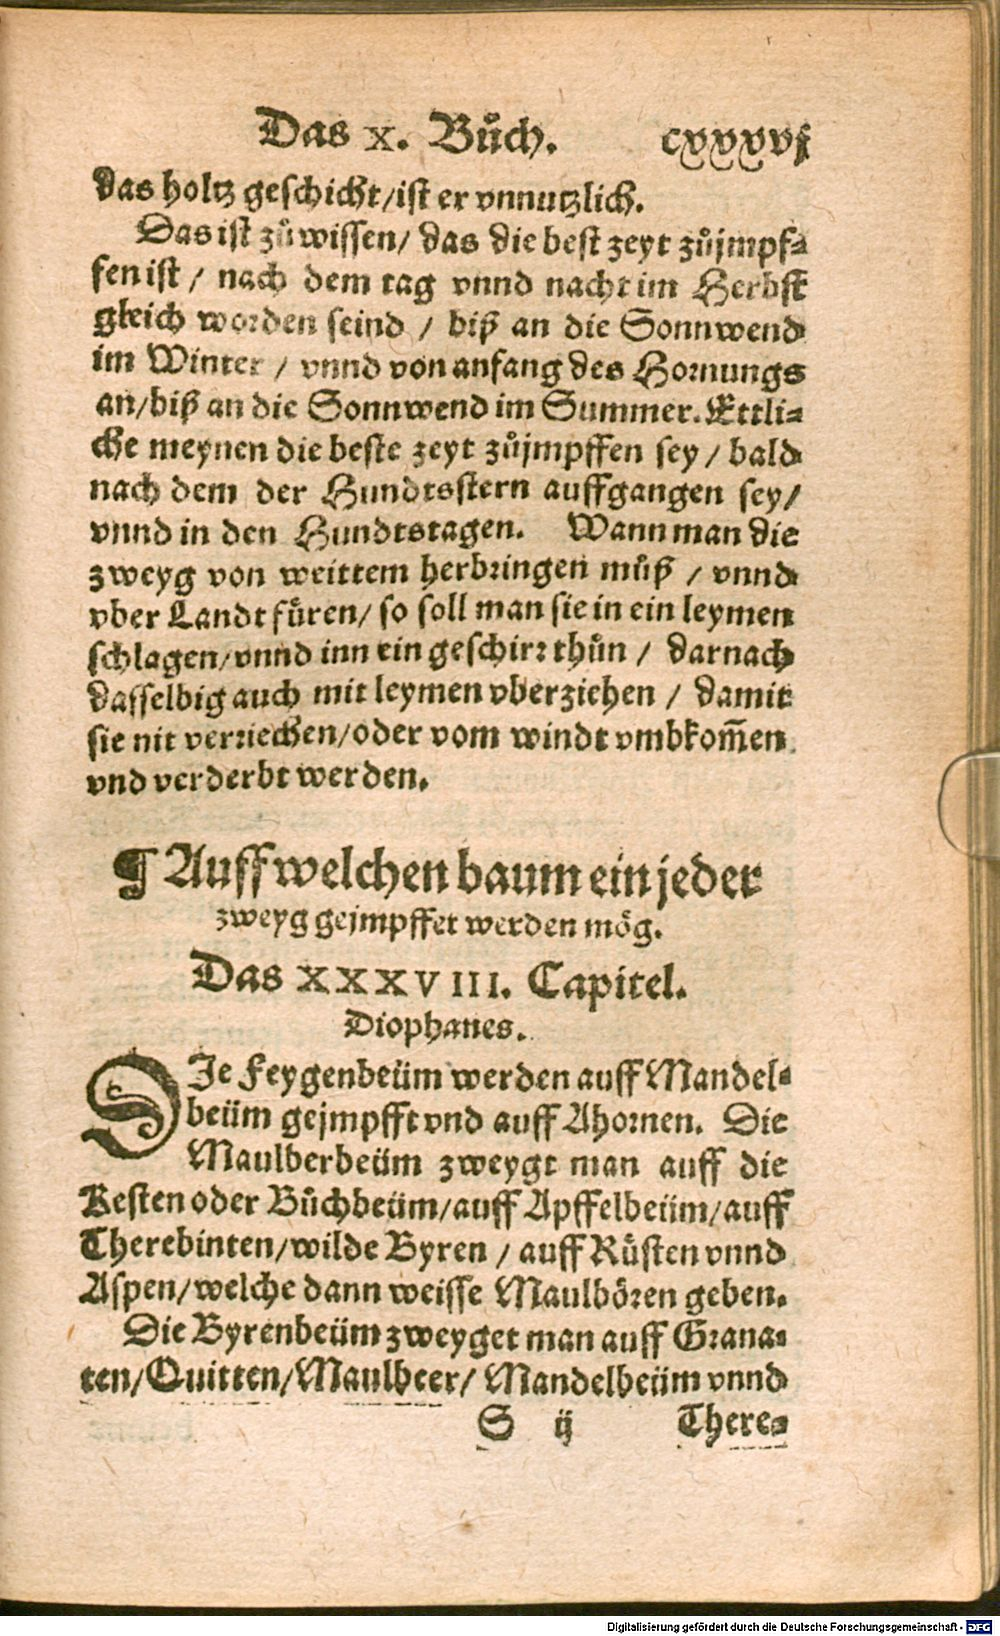 Das X. Bůch. cxxxvj
das holtz geschicht/ist er vnnutzlich.
Das ist zů wissen/ das die best zeyt zůjmpf-
fen ist / nach dem tag vnnd nacht im Herbst
gleich worden seind / biß an die Sonnwend
im Winter / vnnd von anfang des Hornungs
an/biß an die Sonnwend im Summer. Ettli-
che meynen die beste zeyt zůjmpffen sey / bald
nach dem der Hundtsstern auffgangen sey/
vnnd in den Hundtstagen. Wann man die
zweyg von weittem herbringen můß / vnnd
vber Landt füren/ so soll man sie in ein leymen
schlagen/vnnd inn ein geschirr thůn / darnach
dasselbig auch mit leymen vberziehen / damit
sie nit verriechen/oder vom windt vmbkom̃en
vnd verderbt werden.
¶ Auff welchen baum ein jeder
zweyg gejmpffet werden mög.
Das XXXVIII. Capitel.
Diophanes.
DIe Feygenbeüm werden auff Mandel-
beüm gejmpfft vnd auff Ahornen. Die
Maulberbeüm zweygt man auff die
Kesten oder Bůchbeüm/auff Apffelbeüm/auff
Therebinten/wilde Byren / auff Rüsten vnnd
Aspen/welche dann weisse Maulbören geben.
Die Byrenbeüm zweyget man auff Grana-
ten/Quitten/Maulbeer/ Mandelbeüm vnnd
S ij There-
Digitalisierung gefördert durch die Deutsche Forschungsgemeinschaft - DFG